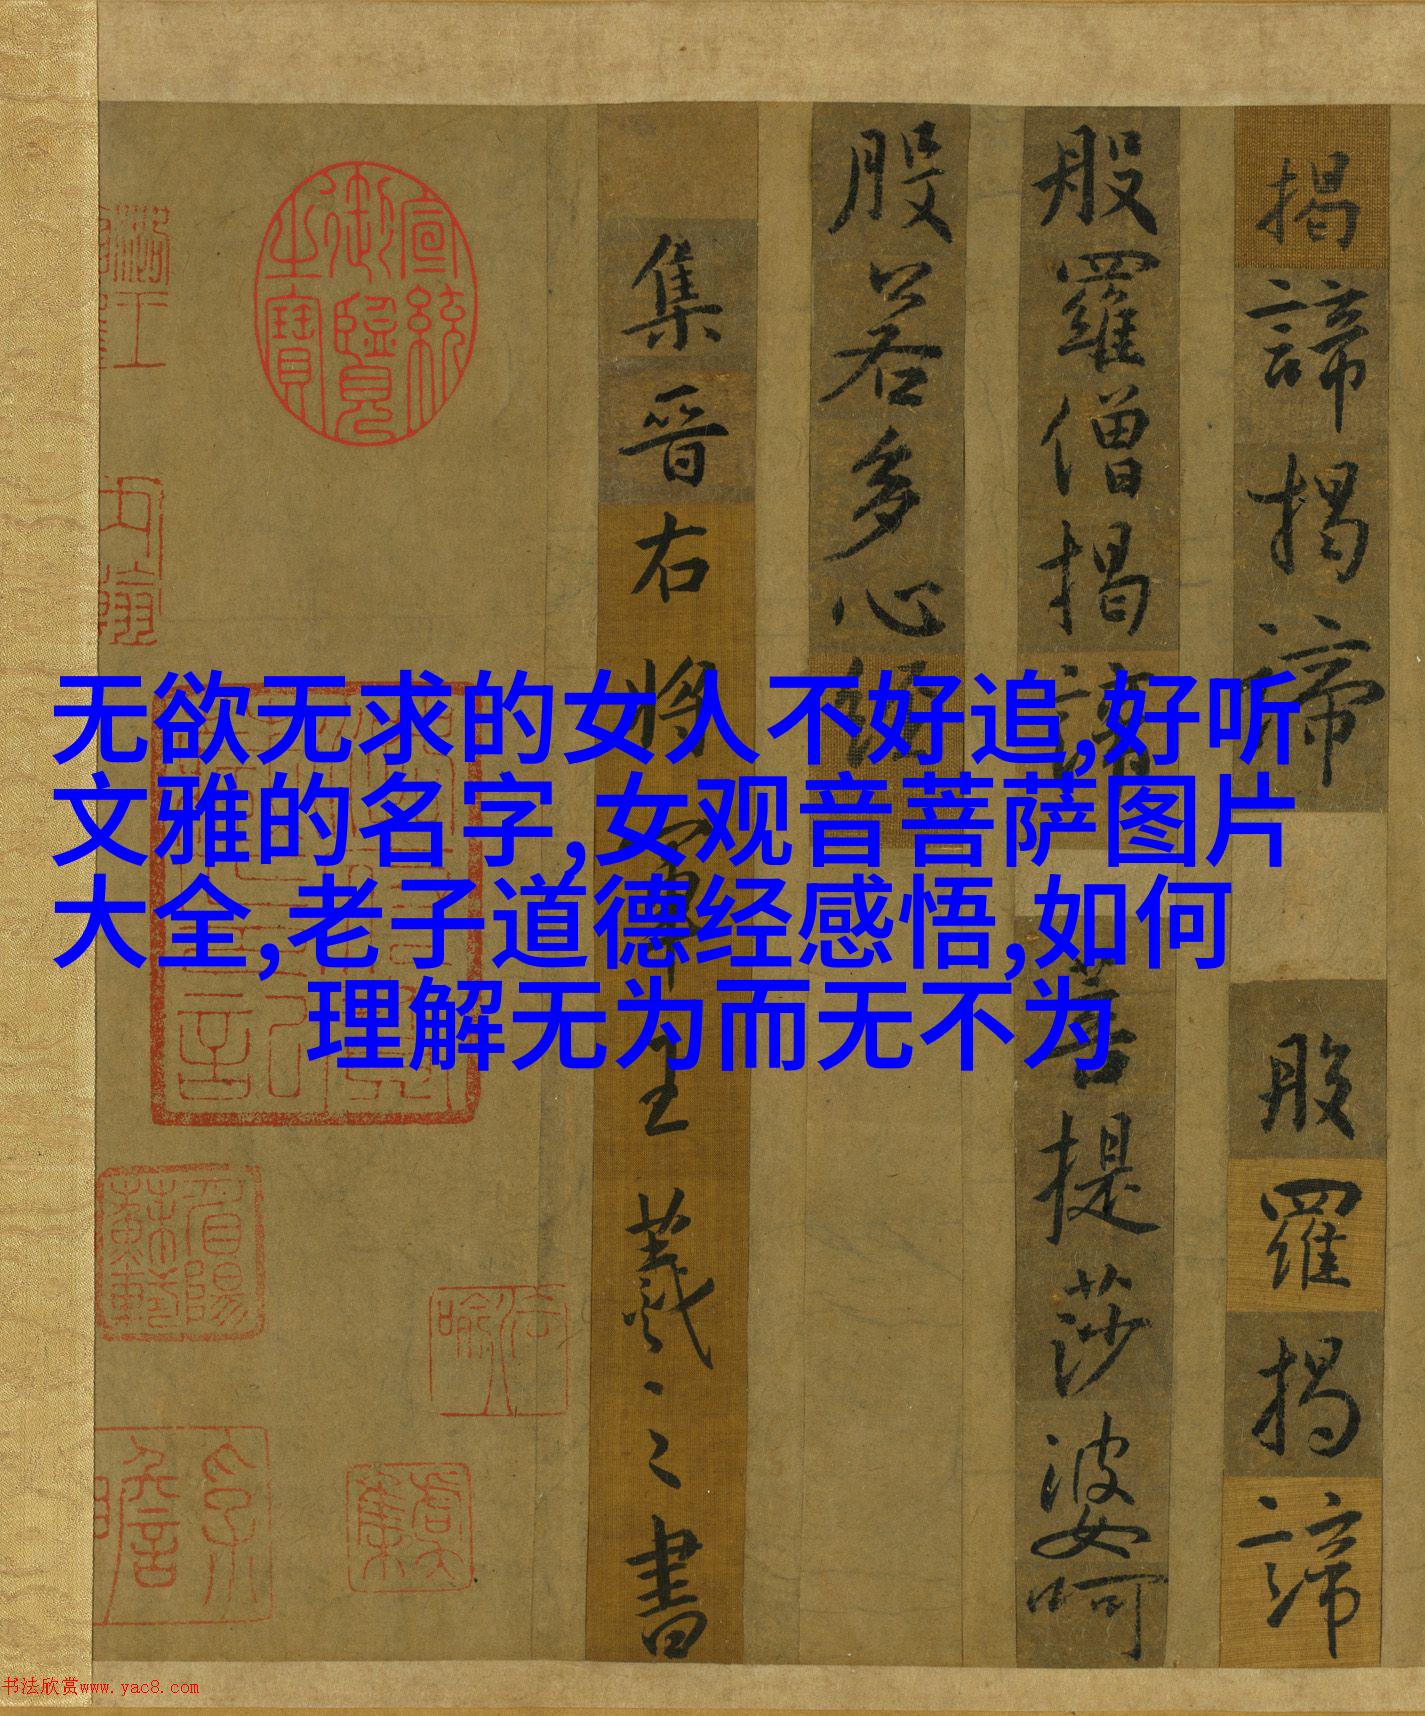 无欲无求的女人不好追,好听
文雅的名字,女观音菩萨图片
大全,老子道德经感悟,如何
理解无为而无不为
揭諦揭諦般羅揭諦
般羅僧揭諦菩提莎婆呵
般若多心經
集晉右將軍王羲之書
宣統御覽之寶
书法欣赏www.yac8.com